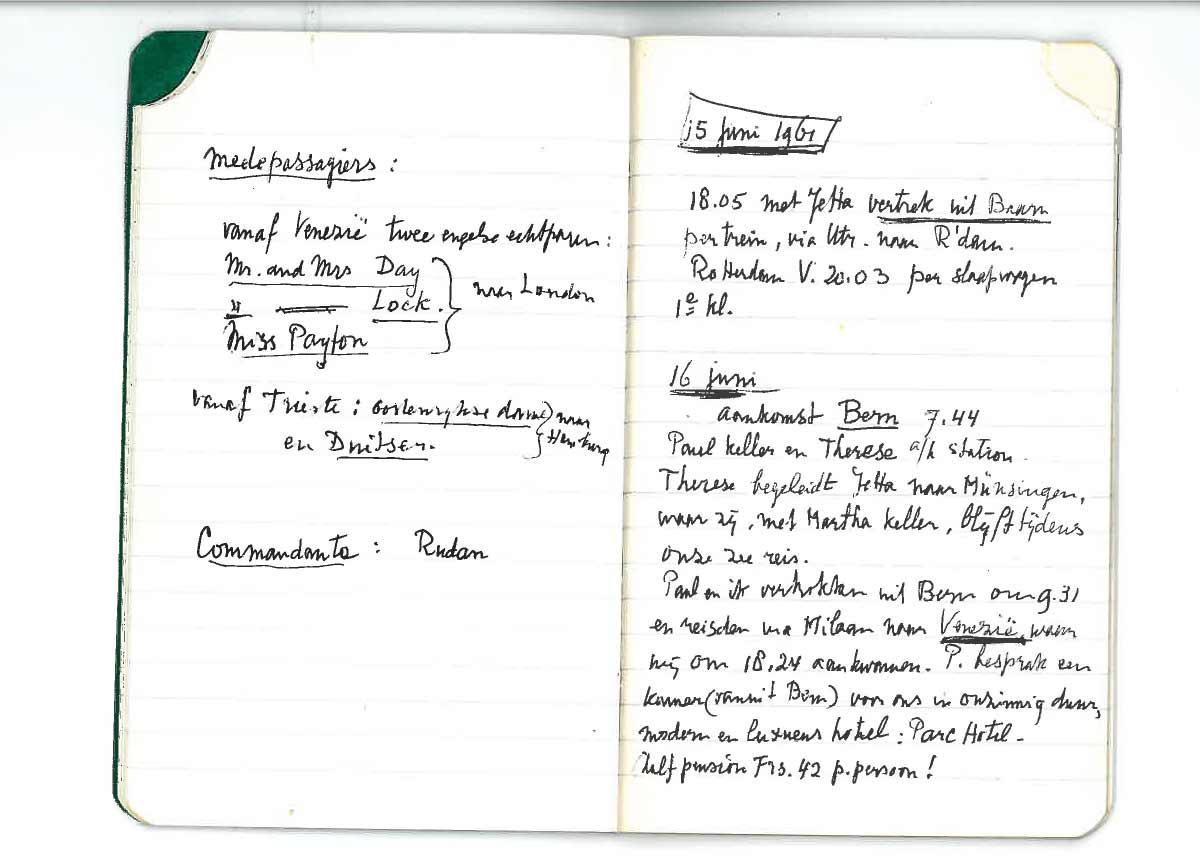 Medepassagiers :
vanaf Venezië twee engelse echtparen :
Mr. and Mrs Day
" Lock. naar London
Miss Payton
vanaf Trieste : oostenrykse dame naar
en Duitser. Hamburg
Commandante : Rudan
15 juni 1961
18.05 met Jetta vertrek uit Baarn
per trein, via Utr. naar R'dam.
Rotterdam V. 20.03 per slaapwagen
1e kl.
16 juni
aankomst Bern 7.44
Paul Keller en Therese a/h station.
Therese begeleidt Jetta naar Münsingen,
waar zij, met Martha Keller, blijft tijdens
onze zee reis.
Paul en ik vertrokken uit Bern om 9.31
en reisden via Milaan naar Venezië, waar
wij om 18.24 aankwamen. P. besprak een
kamer (vanuit Bern) voor ons in onzinnig duur,
modern en luxueus hotel : Parc Hotel -
Half pension Frs. 42 p. persoon !